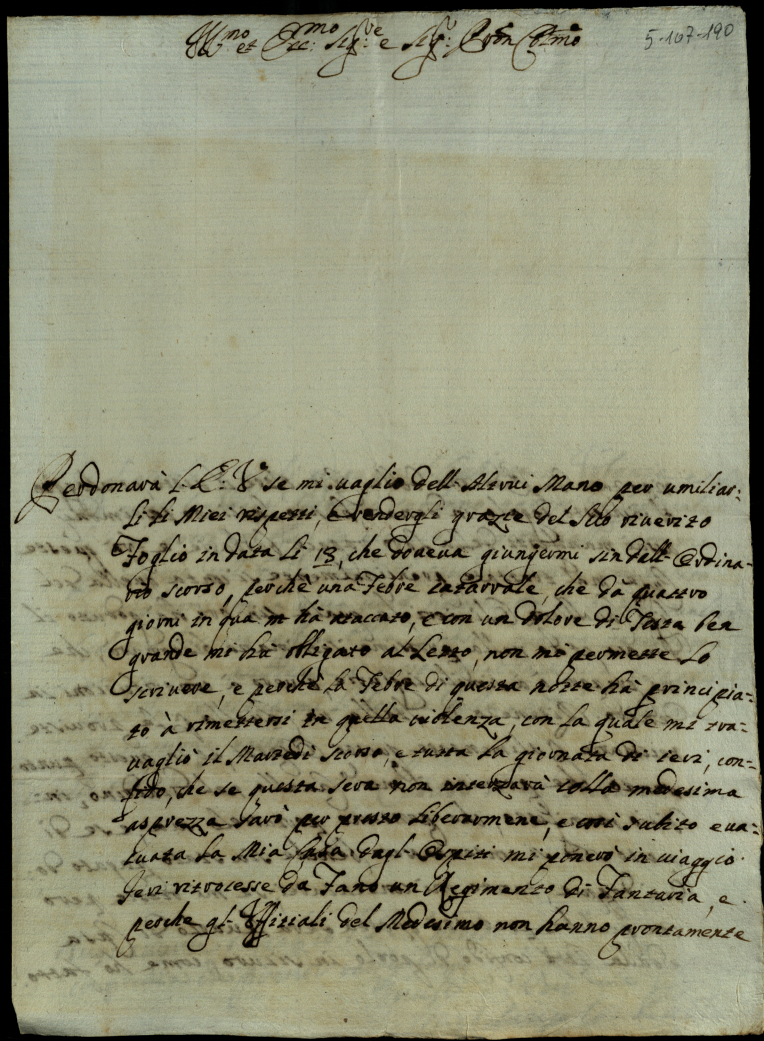 Ill:mo et Ecc:mo Sig:re e Sig:r Pron Col:mo
5-107-190
Perdonarà l'E: V:a se mi vaglio dell'Altrui Mano per umiliar:
li li Miei rispetti, e rendergli grazie del Suo riverito
Foglio in data li 18, che doveva giungermi sin dall'Ordina-
rio scorso, perchè una Febre catarrale, che da quattro
giorni in qua m'hà attaccato, e con un dolore di Testa ben
grande mi hà obligato al Letto, non mi permette lo
scrivere, e perchè la Febre di questa notte hà principia-
to à rimettersi in quella violenza, con la quale mi tra-
vagliò il Martedì scorso, e tutta la giornata di ieri, con-
fido, che se questa sera non interzarà colla medesima
asprezza sarò per presto liberarmene, e così subito eva-
cuata la Mia Casa dagl'Ospiti mi ponerò in viaggio.
Ieri ritrocesse da Fano un Regimento di Fantaria, e
perche gl'Uffitiali del Medesimo non hanno prontamente